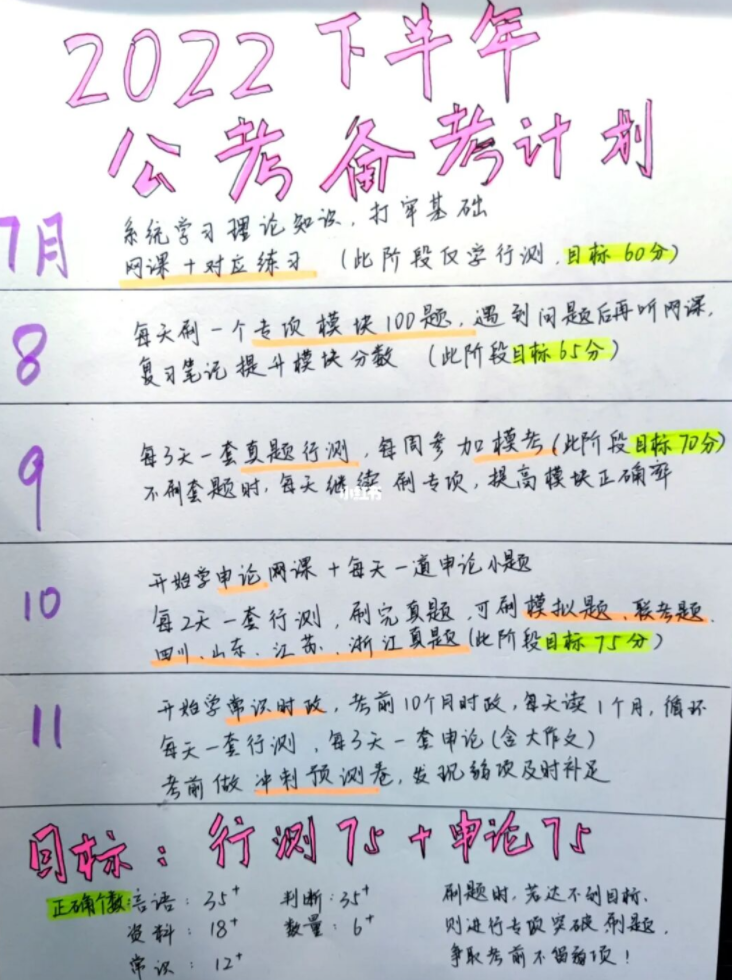 2022下半年
公考备考计划
7月
系统学习理论知识，打牢基础
网课+对应练习（此阶段仅学行测，目标60分）
8
每天刷一个专项模块100题，遇到问题后再听网课，
复习笔记提升模块分数（此阶段目标65分）
9
每3天一套真题行测，每周参加模考（此阶段目标70分）
不刷套题时，每天继续刷专项，提高模块正确率
小红书
10
开始学申论网课+每天一道申论小题
每2天一套行测，刷完真题，可刷模拟题、联考题、
四川、山东、江苏、浙江真题（此阶段目标75分）
11
开始学常识时政，考前10个月时政，每天读1个月，循环
每天一套行测，每3天一套申论（含大作文）
考前做冲刺预测卷，发现弱项及时补足
目标：行测75+申论75
正确个数：言语：35+ 判断：35+ 刷题时，若达不到目标，
资料：18+ 数量：6+ 则进行专项突破刷题，
常识：12+ 争取考前不留弱项！